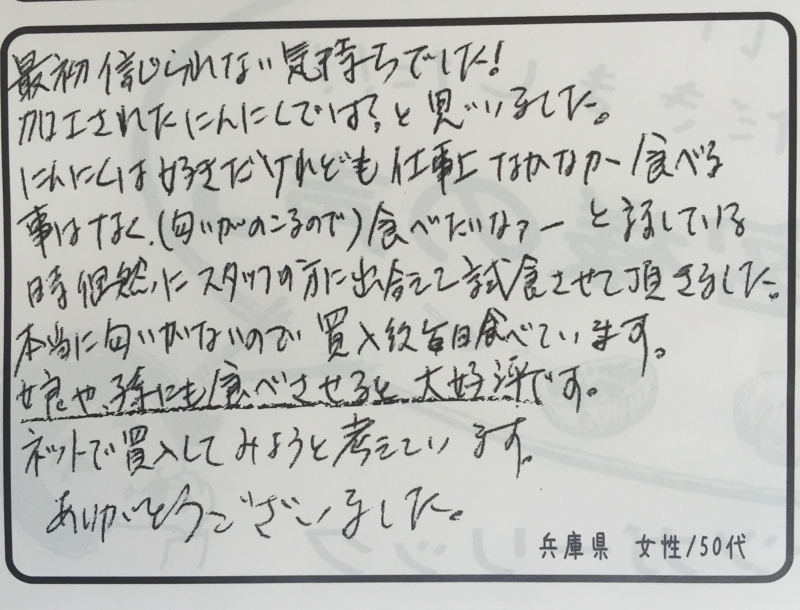 最初信じられない気持ちでした!
加工されたにんにくでは?と思いました。
にんにくは好きだけれども仕事上なかなか食べる
事はなく、(匂いがのこるので)食べたいなァーと話している
時偶然にスタッフの方に出会えて試食させて頂きました。
本当に匂いがないので買入後毎日食べています。
娘や、孫にも食べさせると大好評です。
ネットで買入してみようと考えています。
ありがとうございました。
兵庫県 女性/50代